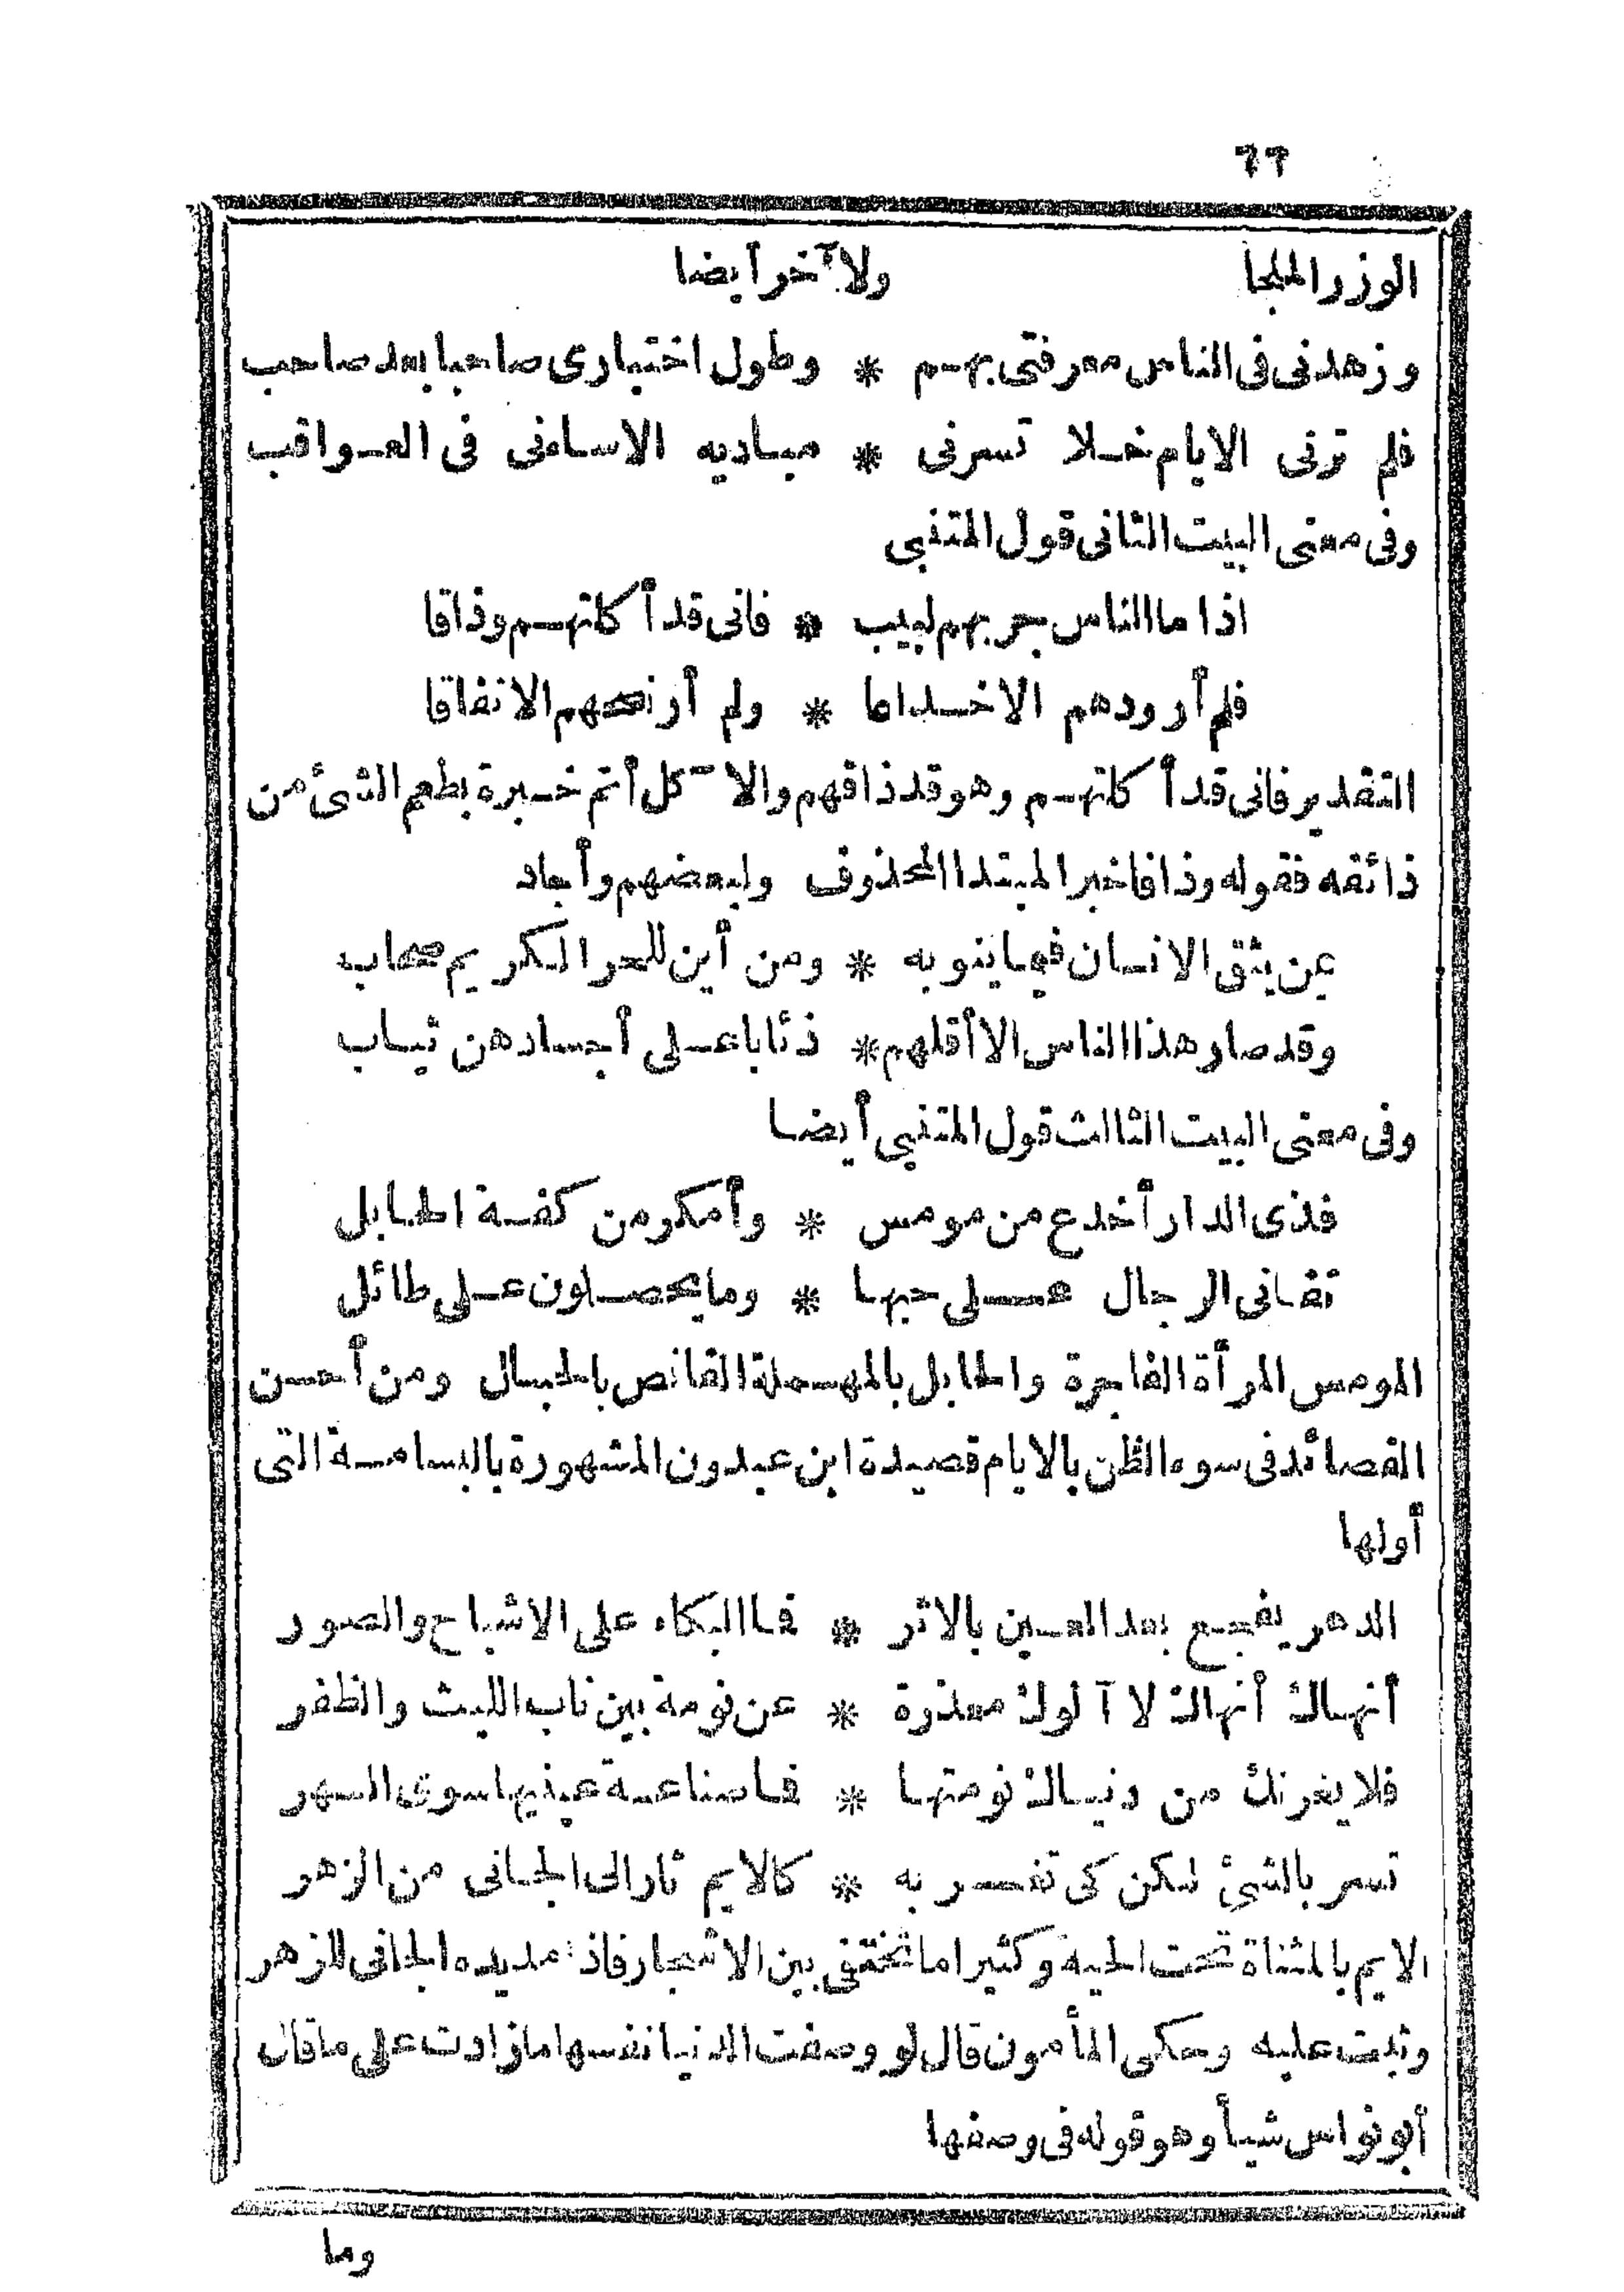 ٦٦
الوزر الملجا ولآخر أيضا
وزهدنى فى الناس معرفتى بهم * وطول اختبارى صاحبا بعد صاحب
فلم ترنى الايام خلا تسرنى * مباديه الاساءنى فى العواقب
وفى معنى البيت الثانى قول المتنبى
اذا ما الناس جربهم لبيب * فانى قد أكلتهم وذاقا
فلم أر ودهم الاخداعا * ولم أر نصحهم الانفاقا
التقدير فانى قد أكلتهم وهو قد ذاقهم والآكل أتم خبرة بطعم الشئ من
ذائقه فقوله وذاقا خبر المبتدا المحذوف ولبعضهم وأجاد
بمن يثق الانسان فيما ينوبه * ومن أين للحر الكريم صحاب
وقد صار هذا الناس الا أقلهم * ذئابا على أجسادهن ثياب
وفى معنى البيت الثالث قول المتنبى أيضا
فذى الدار أخدع من مومس * وأمكر من كفة الحابل
تفانى الرجال على حبها * وما يحصلون على طائل
المومس المرأة الفاجرة والحابل بالمهملة القانص بالحبال ومن أحسن
القصائد فى سوء الظن بالايام قصيدة ابن عبدون المشهورة بالبسامة التى
أولها
الدهر يفجع بعد العين بالاثر * فما البكاء على الاشباح والصور
أنهاك أنهاك لا آلوك معذرة * عن نومة بين ناب الليث والظفر
فلا يغرنك من دنياك نومتها * فما صناعة عينيها سوى السهر
تسر بالشئ لكن كى تغر به * كالايم ثار الى الجانى من الزهر
الايم بالمثناة تحت الحية وكثيرا ما تختفى بين الاشجار فاذا مد يده الجانى للزهر
وثبت عليه وحكى المأمون قال لو وصفت الدنيا نفسها ما زادت على ما قال
أبو نواس شيأ وهو قوله فى وصفها
وما